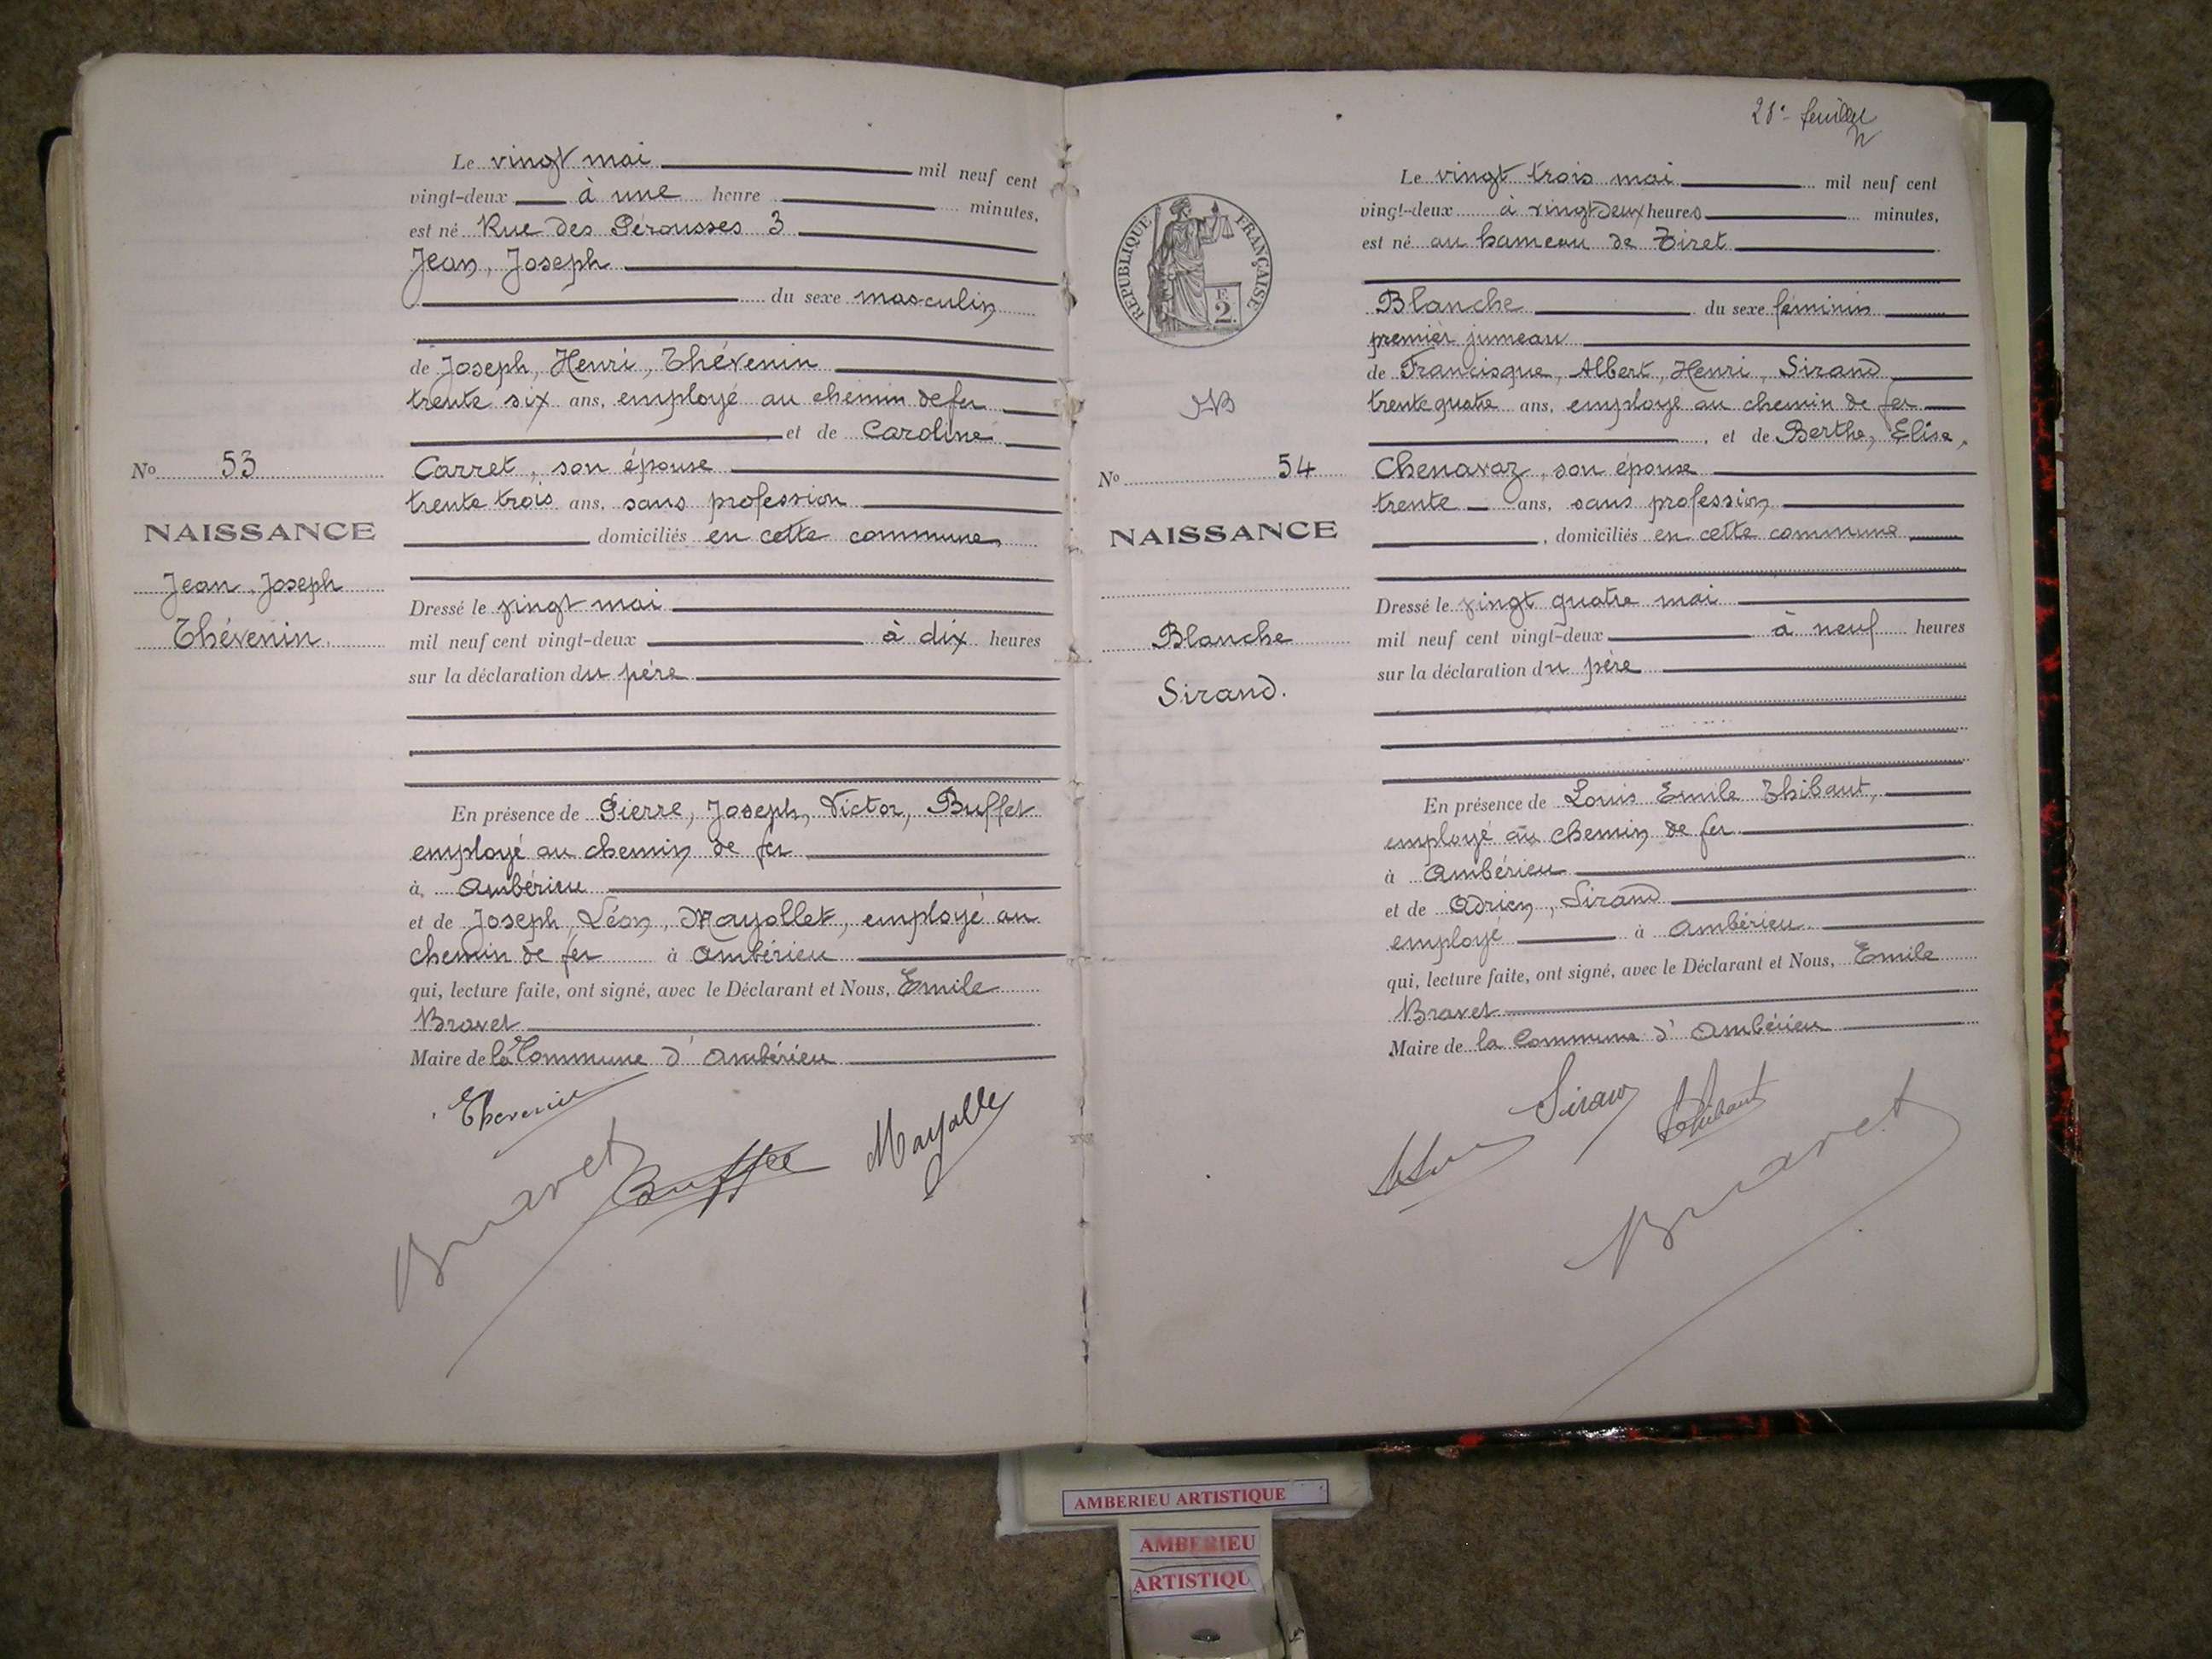 Le vingt mai mil neuf cent
vingt-deux à une heure minutes,
est né Rue des Pérousses 3
Jean, Joseph
du sexe masculin
de Joseph, Henri, Thévenin
trente six ans, employé au chemin de fer
et de Caroline
Carret, son épouse
trente trois ans, sans profession
domiciliés en cette commune
Dressé le vingt mai
mil neuf cent vingt-deux à dix heures
sur la déclaration du père
En présence de Pierre, Joseph, Victor, Buffet
employé au chemin de fer
à Ambérieu
et de Joseph, Léon, Mayollet, employé au
chemin de fer à Ambérieu
qui, lecture faite, ont signé, avec le Déclarant et Nous, Emile
Bravet
Maire de la Commune d'Ambérieu
No 53
NAISSANCE
Jean, Joseph
Thévenin.
Thevenin
Bravet
Buffet
Mayollet
28e feuillet
Le vingt trois mai mil neuf cent
vingt-deux à vingt deux heures minutes,
est né au hameau de Tiret
Blanche du sexe féminin
premier jumeau
de Francisque, Albert, Henri, Sirand
trente quatre ans, employé au chemin de fer
et de Berthe, Elise,
Chenavaz, son épouse
trente ans, sans profession
domiciliés en cette commune
Dressé le vingt quatre mai
mil neuf cent vingt-deux à neuf heures
sur la déclaration du père
En présence de Louis Emile Thibaut,
employé au chemin de fer
à Ambérieu
et de Adrien, Sirand
employé à Ambérieu
qui, lecture faite, ont signé, avec le Déclarant et Nous, Emile
Bravet
Maire de la Commune d'Ambérieu
REPUBLIQUE FRANÇAISE
F.
2
No 54
NAISSANCE
Blanche
Sirand.
Sirand
Thibaut
Bravet
AMBERIEU ARTISTIQUE
AMBERIEU
ARTISTIQU